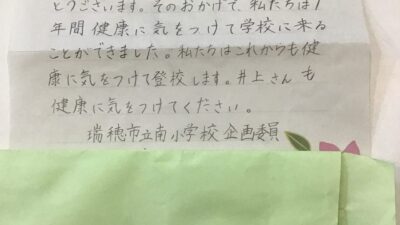 とうございます。そのおかげで、私たちは1
年間健康に気をつけて学校に来る
ことができました。私たちはこれからも健
康に気をつけて登校します。井上さんも
健康に気をつけてください。
瑞穂市立南小学校企画委員